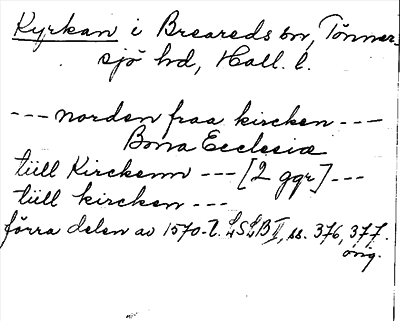 Kyrkan i Breareds sn, Tönner-
sjö hd, Hall. l.
--- norden fraa kircken ---
Bona Ecclesiæ
tüll Kirckenn --- [2 ggr] ---
tüll kircken ---
förra delen av 1570-t. ss. 376, 377.
orig.